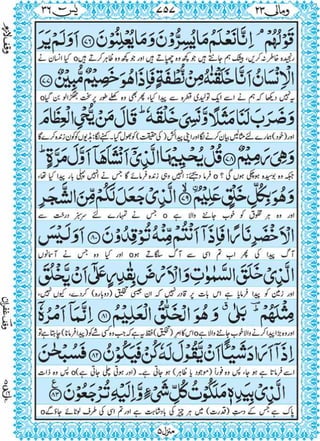 ومالی ۲۳ ۷۵۷ یٰسٓ ۳۶
قَوْلُهُمْ ۘ اِنَّا نَعْلَمُ مَا يُسِرُّوْنَ وَمَا يُعْلِنُوْنَ ﴿۷۶﴾ اَوَلَمْ يَرَ
رنجیدہ خاطر نہ کریں، بیشک ہم جانتے ہیں جو کچھ وہ چھپاتے ہیں اور جو کچھ وہ ظاہر کرتے ہیں o کیا انسان نے
الْاِنْسَانُ اَنَّا خَلَقْنٰهُ مِنْ نُّطْفَةٍ فَاِذَا هُوَ خَصِيْمٌ مُّبِيْنٌ ﴿۷۷﴾
یہ نہیں دیکھا کہ ہم نے اسے ایک تولیدی قطرہ سے پیدا کیا، پھر بھی وہ کھلے طور پر سخت جھگڑالو بن گیا o
وَضَرَبَ لَنَا مَثَلًا وَّنَسِيَ خَلْقَهٗ ؕ قَالَ مَنْ يُّحْيِ الْعِظَامَ
اور (خود) ہمارے لئے مثالیں بیان کرنے لگا اور اپنی پیدائش (کی حقیقت) کو بھول گیا۔ کہنے لگا: ہڈیوں کو کون زندہ کرے گا
وَهِيَ رَمِيْمٌ ﴿۷۸﴾ قُلْ يُحْيِيْهَا الَّذِيْۤ اَنْشَاَهَاۤ اَوَّلَ مَرَّةٍ ؕ
جبکہ وہ بوسیدہ ہوچکی ہوں گی؟ o فرما دیجئے: انہیں وہی زندہ فرمائے گا جس نے انہیں پہلی بار پیدا کیا تھا،
وَهُوَ بِكُلِّ خَلْقٍ عَلِيْمُ ۙ ﴿۷۹﴾ الَّذِيْ جَعَلَ لَكُمْ مِّنَ الشَّجَرِ
اور وہ ہر مخلوق کو خوب جاننے والا ہے o جس نے تمہارے لئے سرسبز درخت سے
الْاَخْضَرِ نَارًا فَاِذَاۤ اَنْتُمْ مِّنْهُ تُوْقِدُوْنَ ﴿۸۰﴾ اَوَلَيْسَ
آگ پیدا کی پھر اب تم اسی سے آگ سلگاتے ہو o اور کیا وہ جس نے آسمانوں
الَّذِيْ خَلَقَ السَّمٰوٰتِ وَالْاَرْضَ بِقٰدِرٍ عَلٰۤى اَنْ يَّخْلُقَ
اور زمین کو پیدا فرمایا ہے اس بات پر قادر نہیں کہ ان جیسی تخلیق (دوبارہ) کردے، کیوں نہیں،
مِثْلَهُمْ ؕ بَلٰى ۗ وَهُوَ الْخَلّٰقُ الْعَلِيْمُ ﴿۸۱﴾ اِنَّمَاۤ اَمْرُهٗۤ
اور وہ بڑا پیدا کرنے والا خوب جاننے والا ہے o اس کا امرِ (تخلیق) فقط یہ ہے کہ جب وہ کسی شے کو (پیدا فرمانا) چاہتا ہے تو
اِذَاۤ اَرَادَ شَيْـًٔا اَنْ يَّقُوْلَ لَهٗ كُنْ فَيَكُوْنُ ﴿۸۲﴾ فَسُبْحٰنَ
اسے فرماتا ہے: ہو جا، پس وہ فوراً (موجود یا ظاہر) ہو جاتی ہے۔ (اور ہوتی چلی جاتی ہے) o پس وہ ذات
الَّذِيْ بِيَدِهٖ مَلَكُوْتُ كُلِّ شَيْءٍ وَّاِلَيْهِ تُرْجَعُوْنَ ﴿۸۳﴾
پاک ہے جس کے دستِ (قدرت) میں ہر چیز کی بادشاہت ہے اور تم اسی کی طرف لوٹائے جاؤگے o
منزل ۵